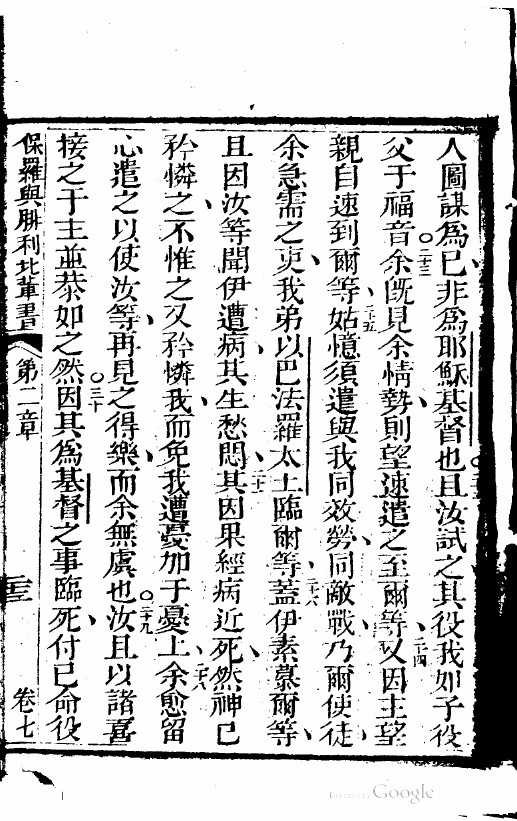 人圖謀為己非為耶穌基督也且汝試之其役我如子役
父于福音二三余既見余情勢則望速遣之至爾等二四又因主望
親自速到爾等二五姑憶須遣與我同效勞同敵戰乃爾使徒
余急需之吏我弟以巴法羅太士臨爾等二六蓋伊素慕爾等
且因汝等聞伊遭病其生愁悶二七其因果經病近死然神已
矜憐之不惟之又矜憐我而免我遭憂加于憂上二八余愈留
心遣之以使汝等再見之得樂而余無虞也二九汝且以諸喜
接之于主並恭如之三十然因其為基督之事臨死付己命役
保羅與腓利比輩書 第二章 卷七
Digitized by Google